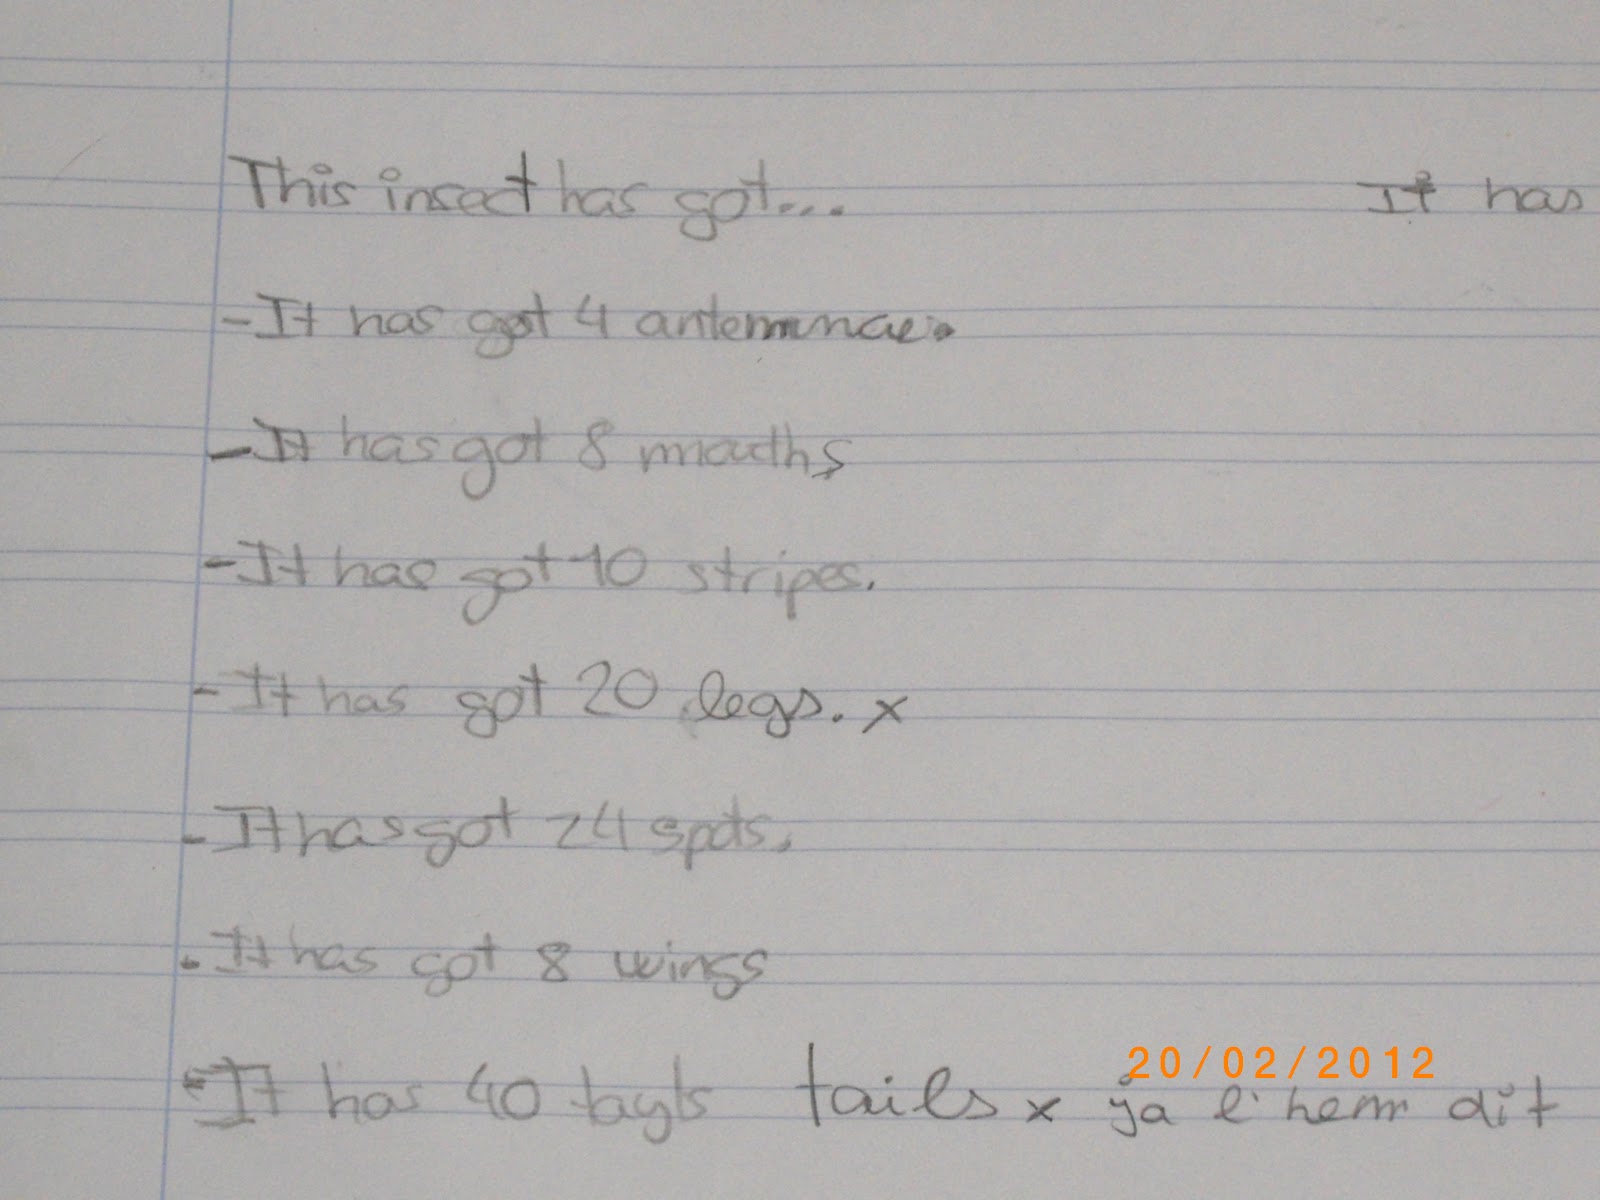 This insect has got... It has
-It has got 4 antemnae.
-It has got 8 mouths
-It has got 10 stripes.
-It has got 20 legs. x
-It has got 24 spots.
.It has got 8 wings
-It has 40 tayls tails x ja l'hem dit
20/02/2012